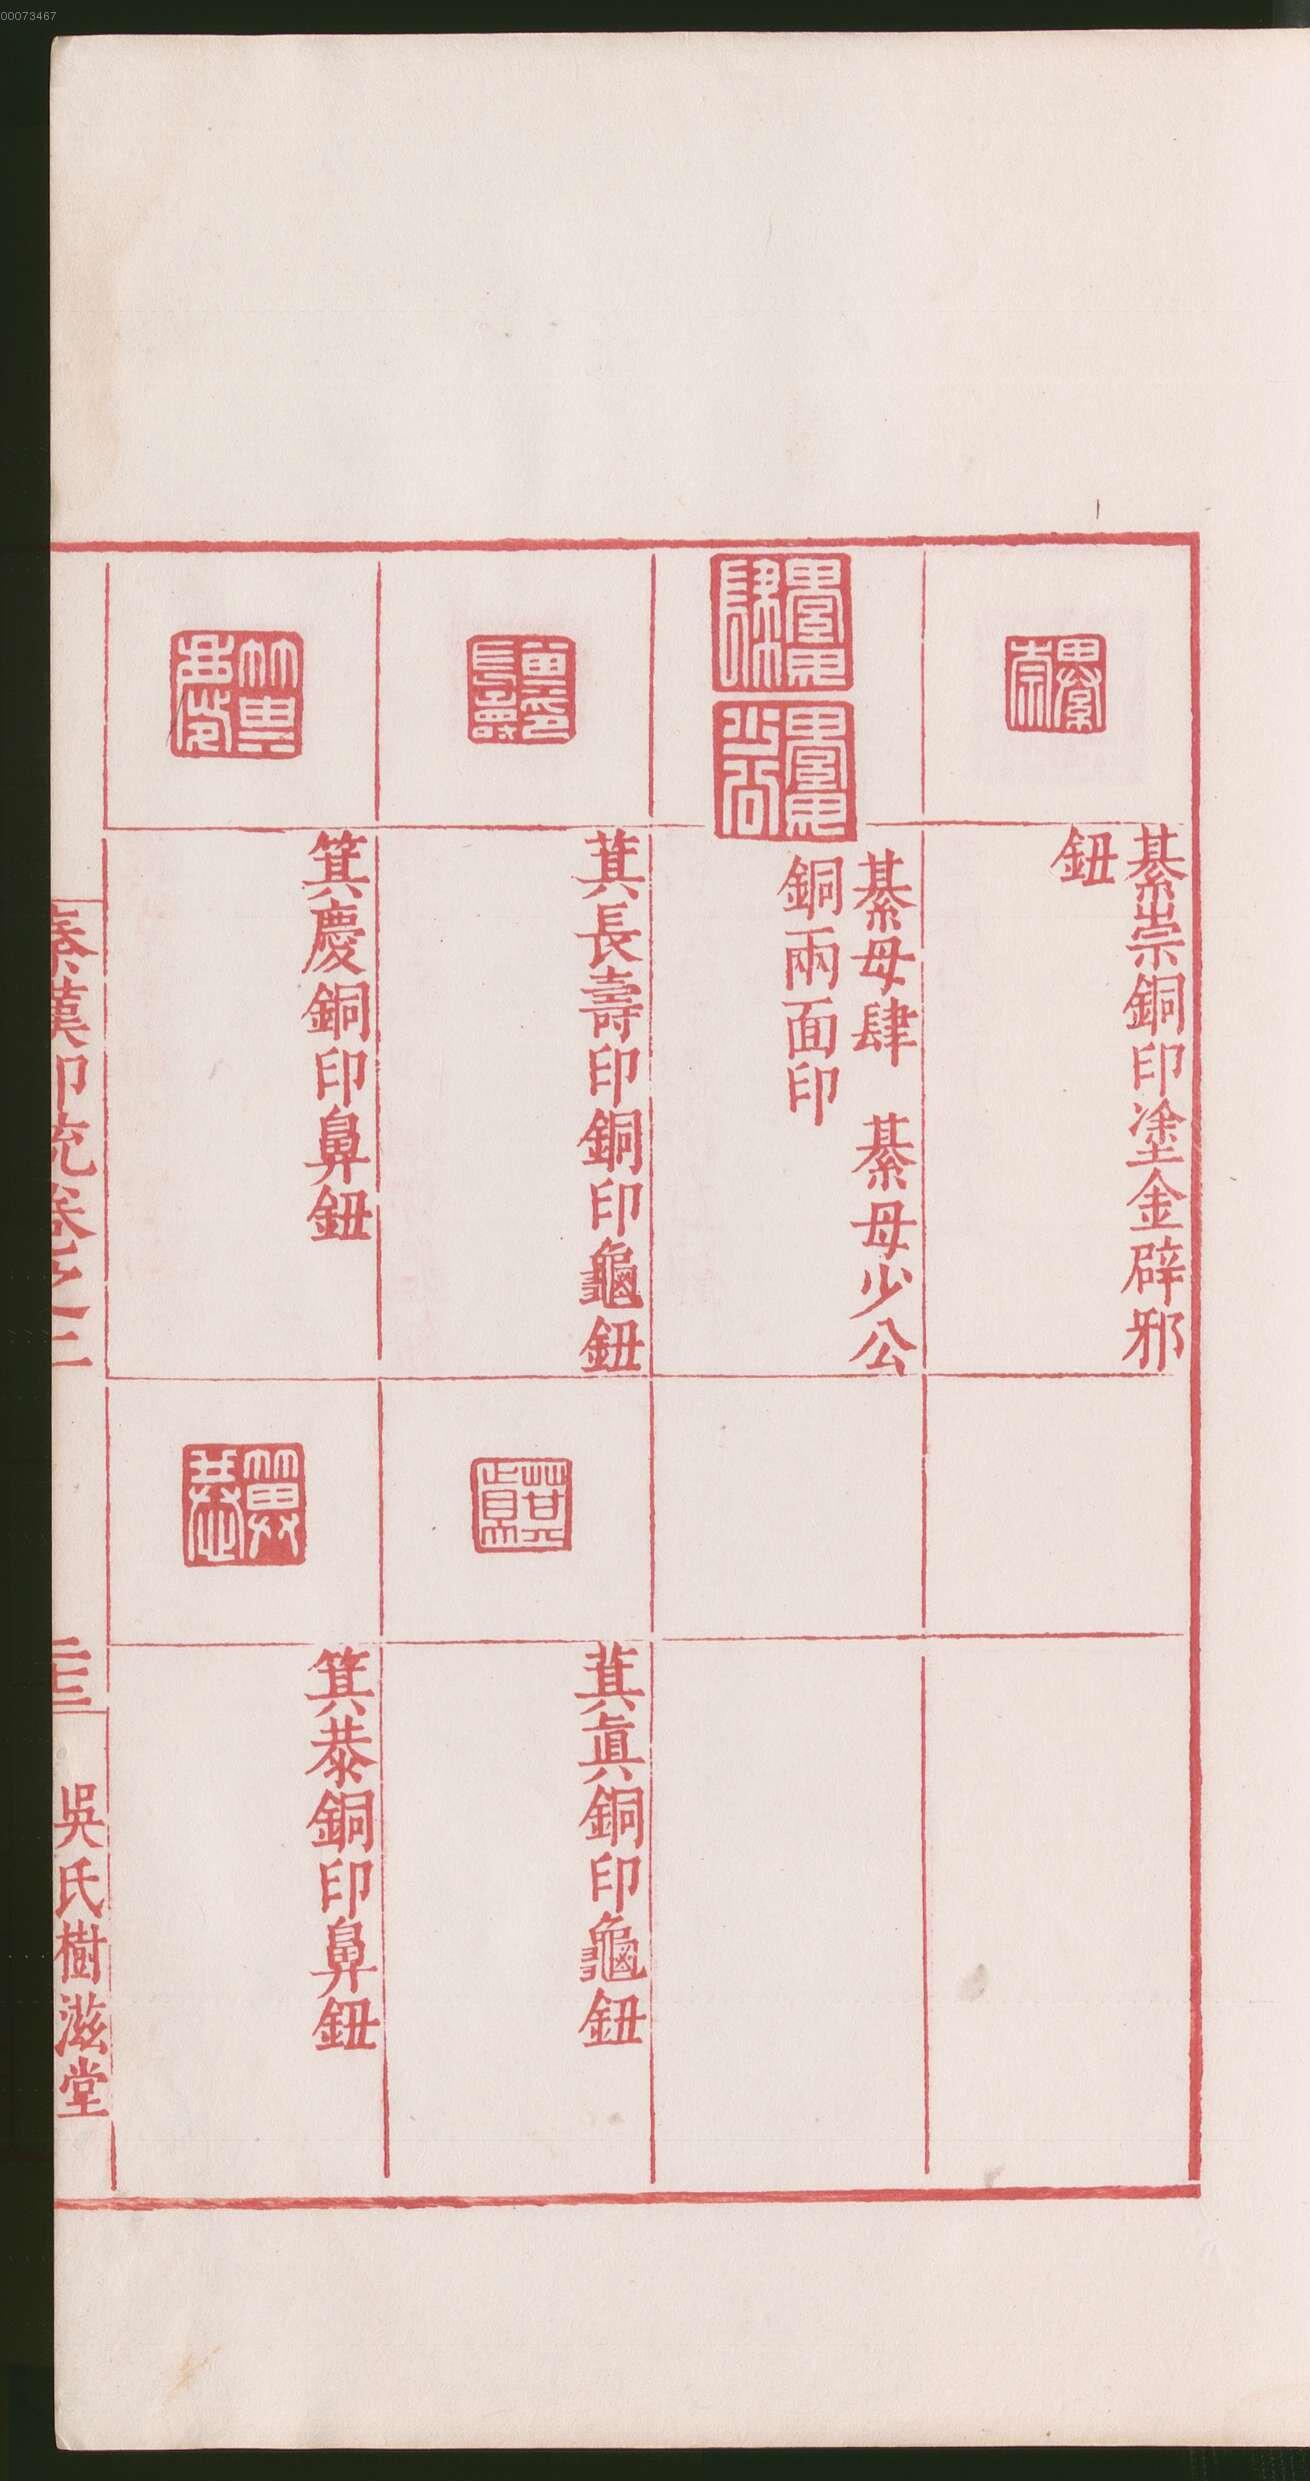 00073467
綦崇銅印塗金辟邪
鈕
綦母肆　綦母少公
銅兩面印
萁長壽印銅印龜鈕
萁眞銅印龜鈕
箕慶銅印鼻鈕
箕恭銅印鼻鈕
秦漢印統卷之二
二十三
吳氏樹滋堂